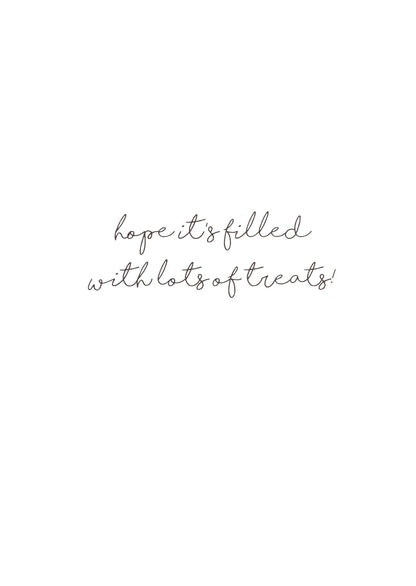 hope it's filled
with lots of treats!